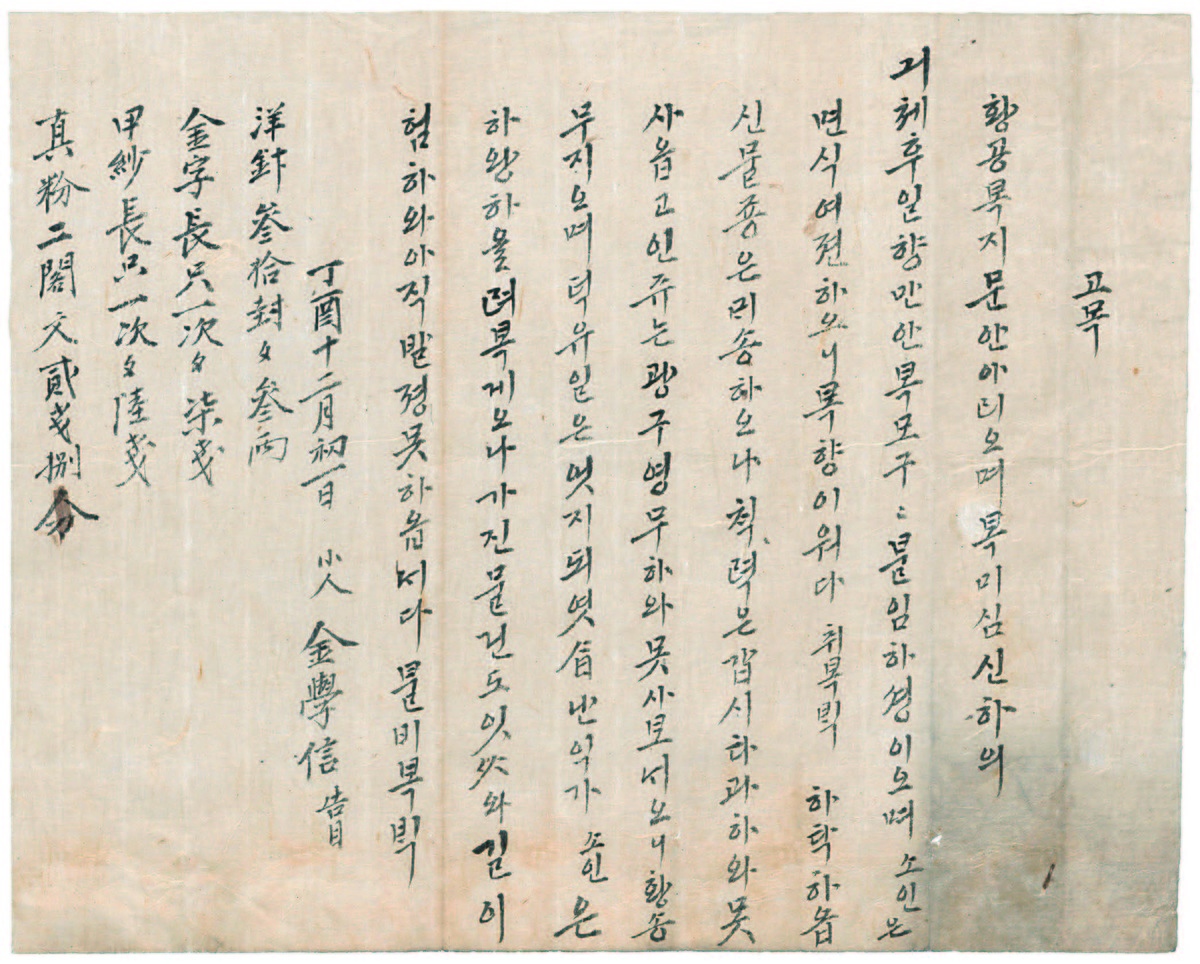 고목
황공복지문안아뢰오며복미심신하의
긔체후일향만안복모구〻불임하셩이오며 소인은
면식여젼하오니복향이워다 취복ᄇᆡᆨ 하탁하압
신물죵은긔송하오나쳑녁은갑시하과하와못
사읍고인쥬는광구영무하와못사보니오니황송
무지오며덕유일은엇지되엿삽난익가 소인은
하왕하올려복계오나가진물건도잇삿와길이
험하와아직발졍못하압니다물비복ᄇᆡᆨ
丁酉十二月初一日 小人 金學信 告目
洋針 參拾封 文 參兩
金字長只一次 文 柒戔
甲紗長只一次 文 陸戔
真粉二閣 文 貳戔捌分